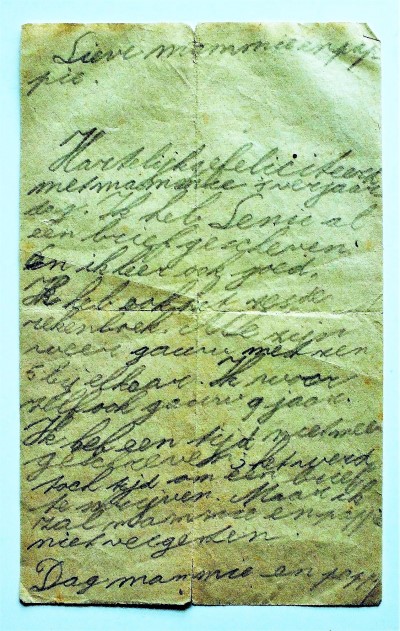 Lieve mammie en pap
pie.
Hartelijk gefeliciteerd
met mammie s verjaar
dag. Ik heb Lenie al
een brief gescreven
en ik leer ook goed.
Ik heb ook het
rekenboek
gauw met zen
bij elkaar. Ik word
zelf ook gauw 9 jaar.
Ik heb een tijd niet meer
gescreven, het werd
toch tijd om een brief
te scrijven. Maar ik
zal mammie en pappie
niet vergeten.
Dag mammie en papp